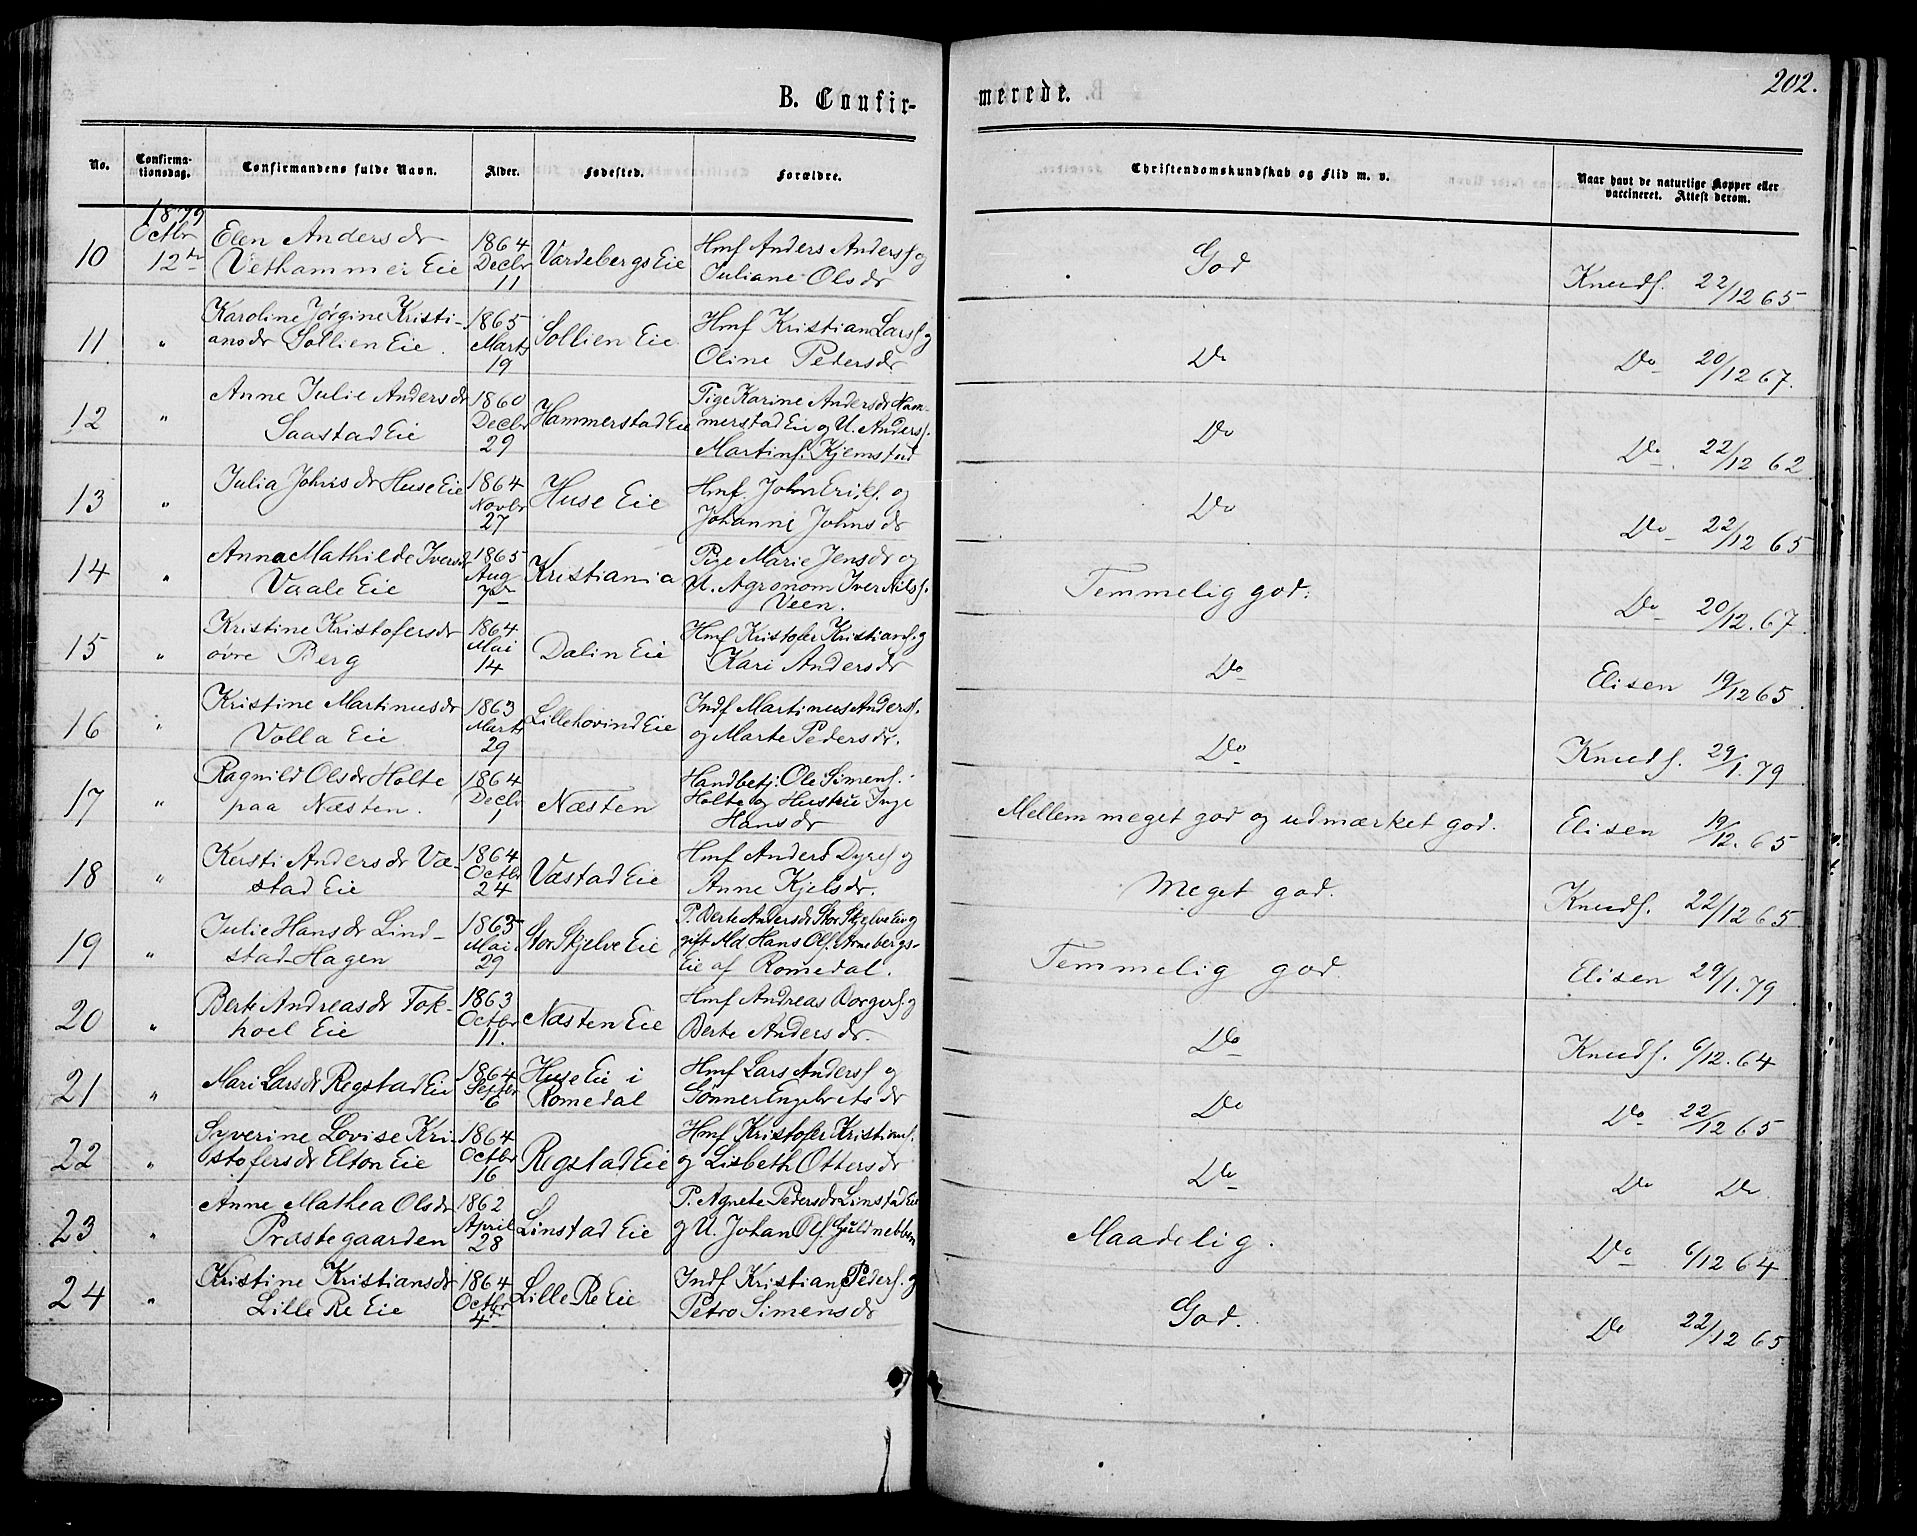 B. Confir-
merede.
202.
No.
Confirma-
tionsdag.
Confirmandens fulde Navn.
Alder.
Fødested.
Forældre.
Christendomskundskab og Flid m. v.
Naar havt de naturlige Kopper eller
vaccineret. Attest derom.
1879
10 Octbr 12te
Elen Andersdr
Vethammer Eie
1864
Decbr
11
Vardebergs Eie
Hmf Anders Anders. og
Juliane Olsdr
God
Knuds. 22/12 65
11 "
Karoline Jørgine Kristi-
ansdr Sollien Eie.
1865
Marts
19
Sollien Eie
Hmf Kristian Lars. og
Oline Pedersdr
Do
Do 20/12 67.
12 "
Anne Julie Andersdr
Saastad Eie
1860
Decbr
29
Hammerstad Eie
Pige Karine Andersdr Ham-
merstad Eie og U. Anders.
Martins. Kjemstud
Do
Do 22/12 62
13 "
Julia Johnsdr Huse Eie
1864
Novbr
27
Huse Eie
Hmf. John Eriks. og
Johanne Johnsdr
Do
Do 22/12 65
14 "
Anna Mathilde Iversdr
Vaale Eie
1865
Aug
7de
Kristiania
Pige Marie Jensdr og
U. Agronom Iver Nils.
Veen.
Temmelig god.
Do 20/12. 67
15 "
Kristine Kristofersdr
øvre Berg
1864
Mai
14
Dalin Eie
Hmf Kristofer Kristians. og
Kari Andersdr
Do
Elisen 19/12 65
16 "
Kristine Martinusdr
Volla Eie
1863
Marts
29
Lillehovind Eie
Indf Martinus Anders.
og Marte Pedersdr.
Do
Knuds. 29/1. 79
17 "
Ragnild Olsdr Holte
paa Næsten.
1864
Decbr
1
Næsten
Handbetj. Ole Simens.
Holte og Hustru Inge
Hansdr
Mellem meget god og udmærket god.
Elisen 19/12. 65
18 "
Kersti Andersdr Væ-
stad Eie
1864
Octbr
24
Væstad Eie
Hmf Anders Dyres. og
Anne Kjelsdr.
Meget god.
Knuds. 22/12 65
19 "
Julie Hansdr Lind-
stad-Hagen
1865
Mai
29
Stor Skjelve Eie
P. Berte Andersdr Stor Skjelve Eie og
gift Md Hans Ols. Arnebergs-
Eie af Romedal.
Temmelig god.
Elisen 29/1. 79
20 "
Berte Andreasdr Fok-
hoel Eie
1863
Octbr
11.
Næsten Eie
Hmf Andreas Borgers. og
Berte Andersdr.
Do
Knuds. 6/12. 64
21 "
Mari Larsdr Regstad Eie
1864
Septbr
6
Huse Eie i
Romedal
Hmf Lars Anders. og
Sønner Engebretsdr
Do
Do 22/12 65
22 "
Syverine Lovise Kri-
stofersdr Elton Eie
1864
Octbr
16
Regstad Eie
Hmf Kristofer Kristians.
og Lisbeth Ottersdr
Do
Do Do
23 "
Anne Mathea Olsdr
Præstegaarden
1862
April
28
Linstad Eie
P. Agnete Pedersdr Linstad Eie
og U. Johan Ols. Guldnebben
Maadelig.
Do 6/12 64
24 "
Kristine Kristiansdr
Lille Re Eie
1864
Octbr
4de
Lille Re Eie
Indf Kristian Peders. og
Petro Simensdr
God.
Do 22/12 65